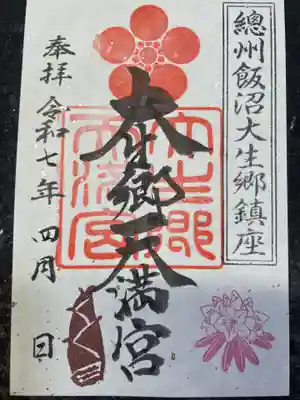 總州飯沼大生郷鎮座
大生郷天満宮
大生郷天満宮
奉拝 令和七年 四月 日